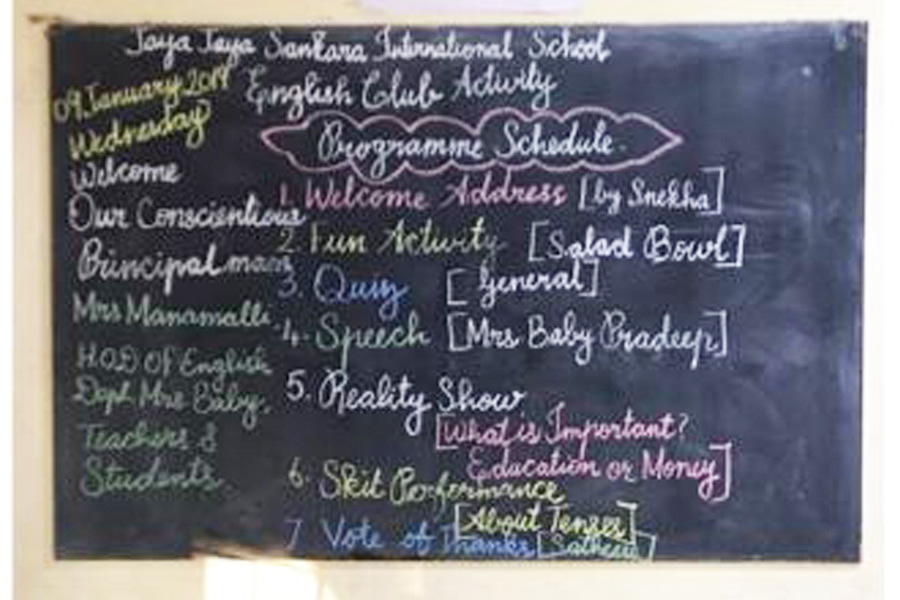 Jaya Jaya Sankara International School
English Club Activity
09 January 2019
Wednesday
Welcome
Our Conscientious
Principal mam
Mrs Manamalli
H.O.D Of English
Dept Mrs Baby,
Teachers &
Students
Programme Schedule
1. Welcome Address [by Snekha]
2. Fun Activity [Salad Bowl]
3. Quiz [General]
4. Speech [Mrs Baby Pradeep]
5. Reality Show
[What is Important?
Education or Money]
6. Skit Performance
[About Tenses]
7 Vote of Thanks